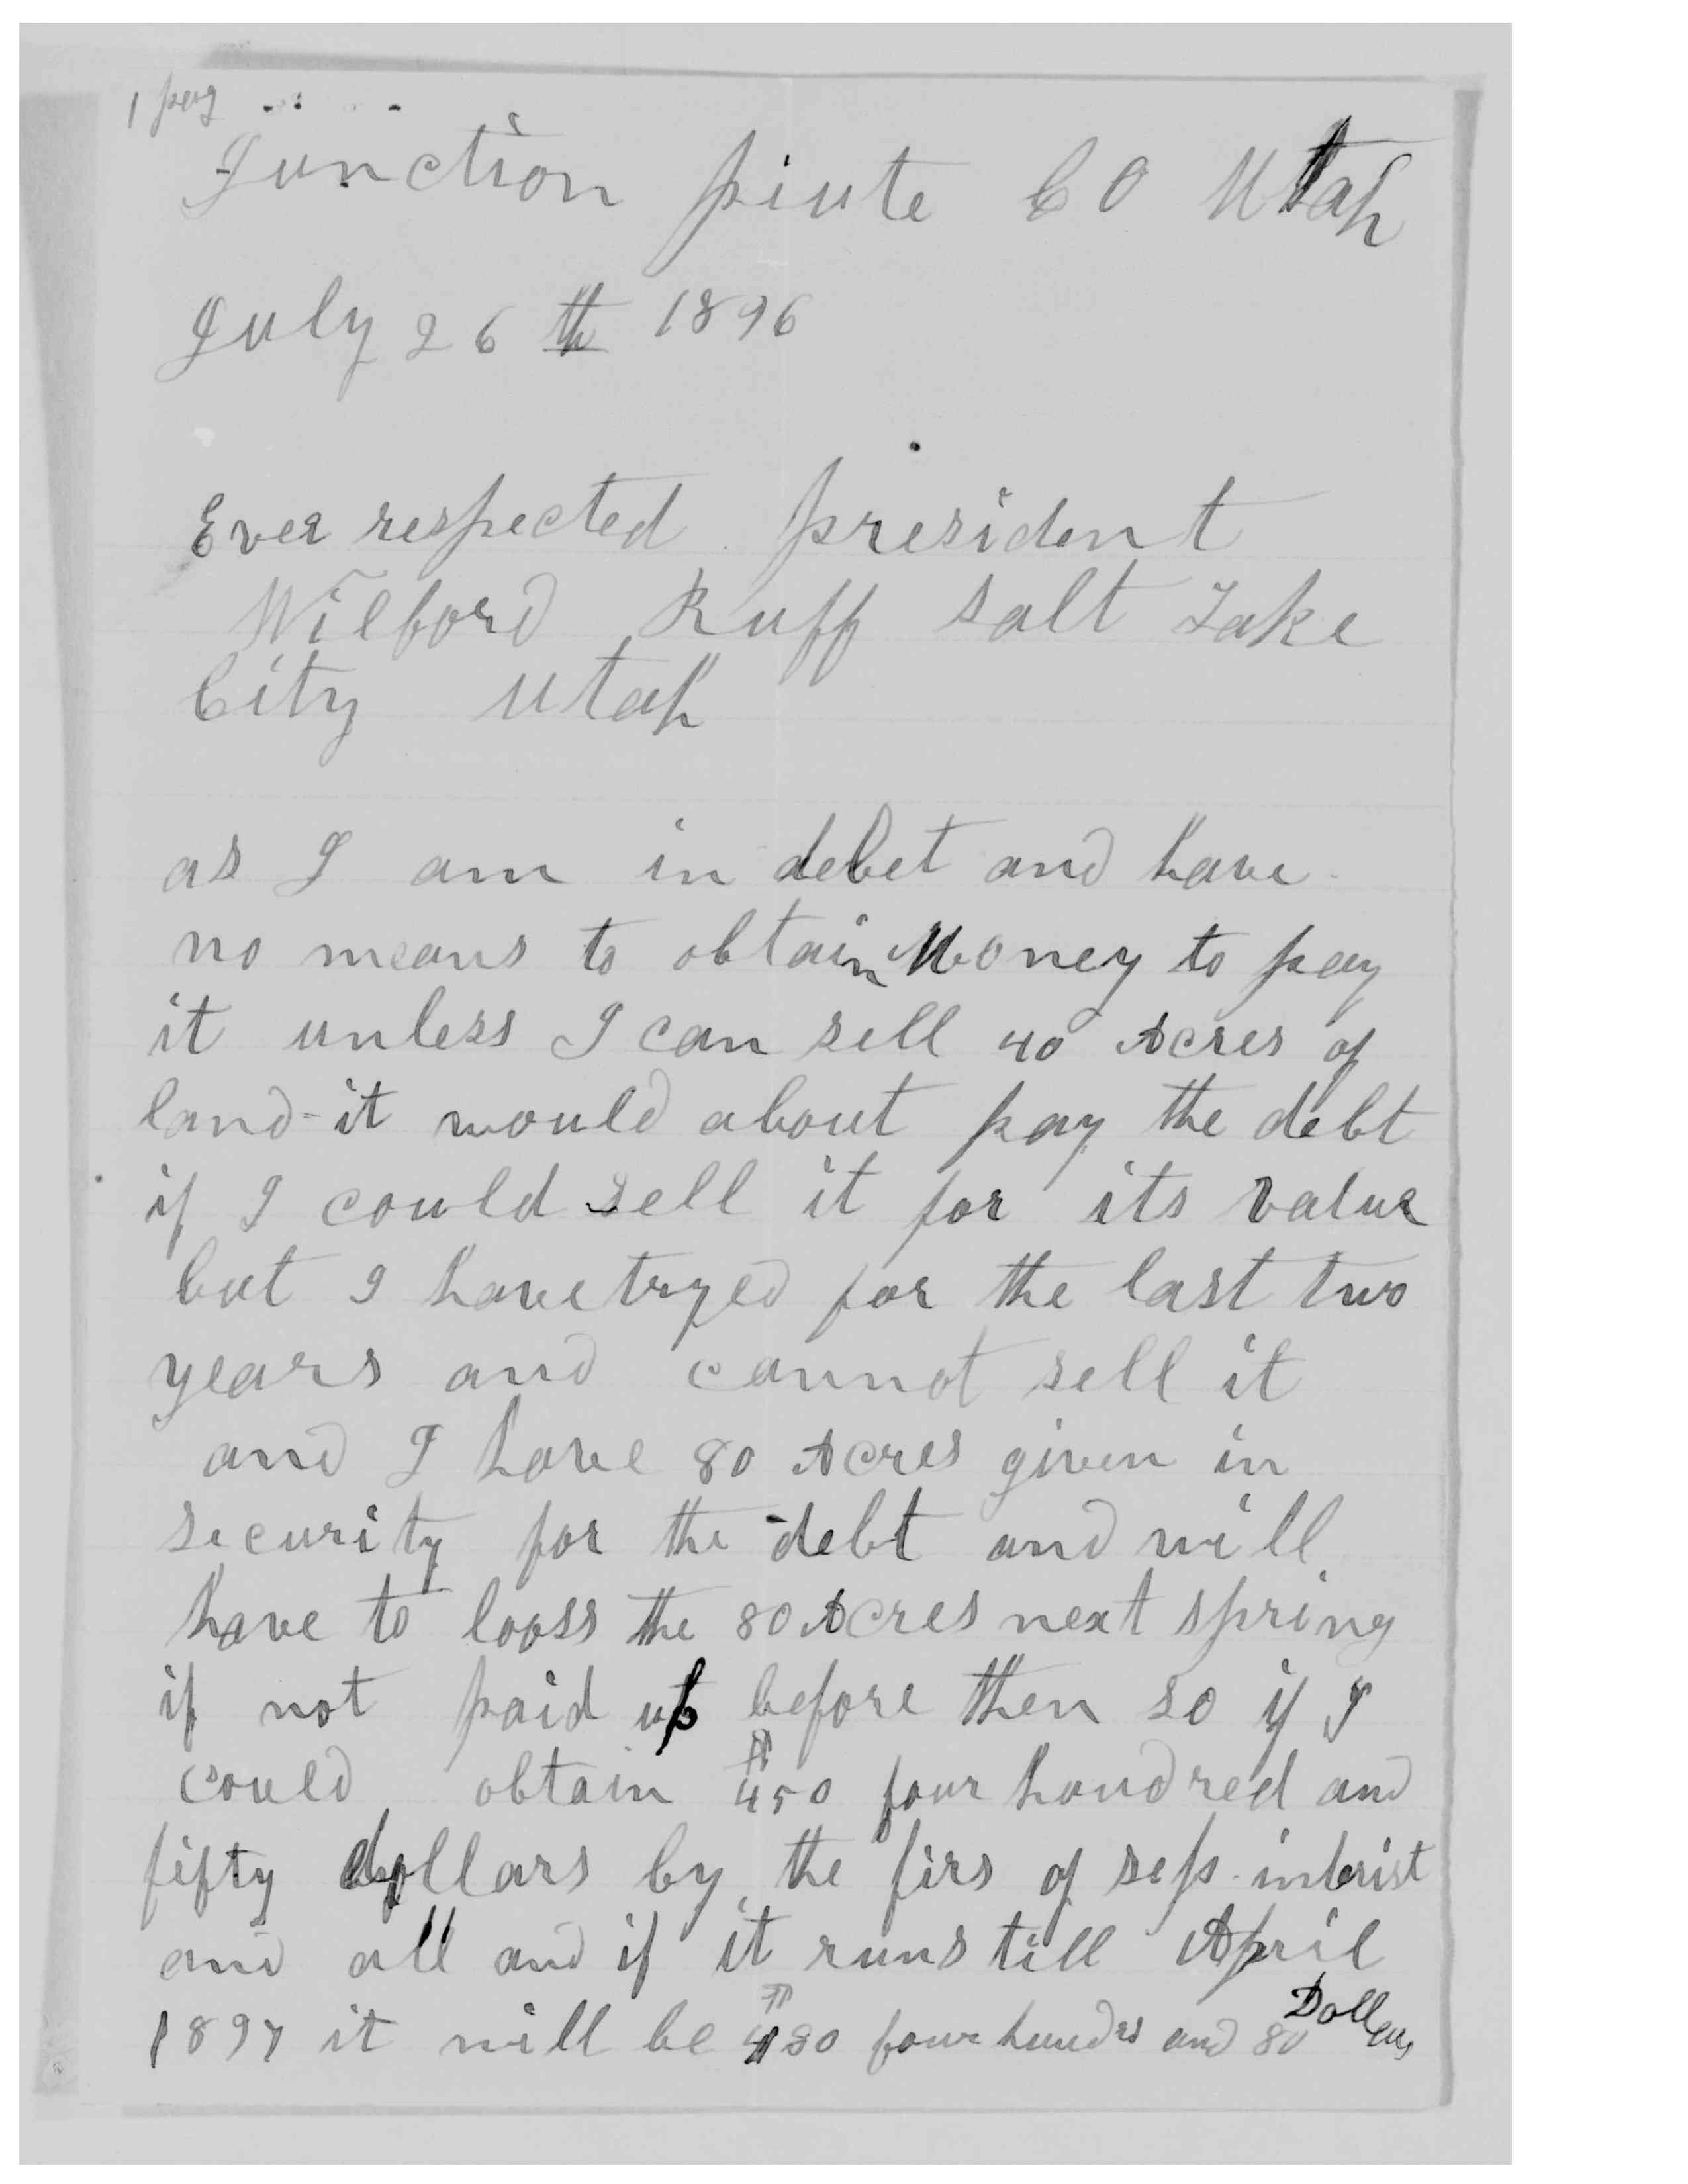 1 peag
Junction piute CO Utah
July 26th 1896
Ever respected president
Wilford Ruff salt Lake
City Utah
as I am in debet and have
no means to obtain Money to pay
it unless I can sell 40 Acres of
land-it would about pay the debt
if I could sell it for its value
but I have tryed for the last two
years and cannot sell it
and I have 80 Acres given in
security for the debt and will
have to looss the 80 Acres next spring
if not paid up before then so if I
could obtain 450 four hondred and
fifty dollars by the firs of sep interist
and all and if it runs till April
1897 it will be 480 four hundrd and 80 Dollars